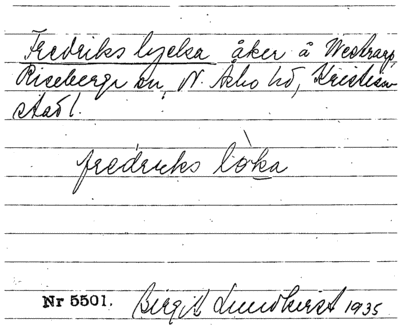 Fredriks lycka åker å Westrarp,
Riseberga sn, N. Åsbo hd, Kristian-
stads l.
fredriks lòka
Nr 5501. Birgit Lundkvist 1935